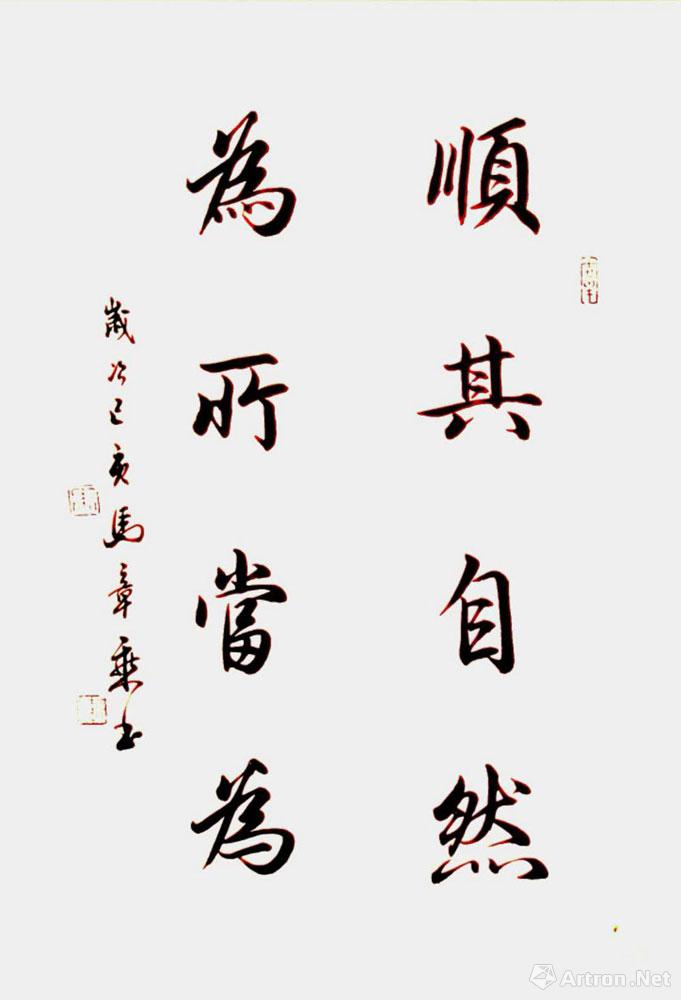 順其自然
為所當為
歲次己亥馬章乘书
Artron.Net